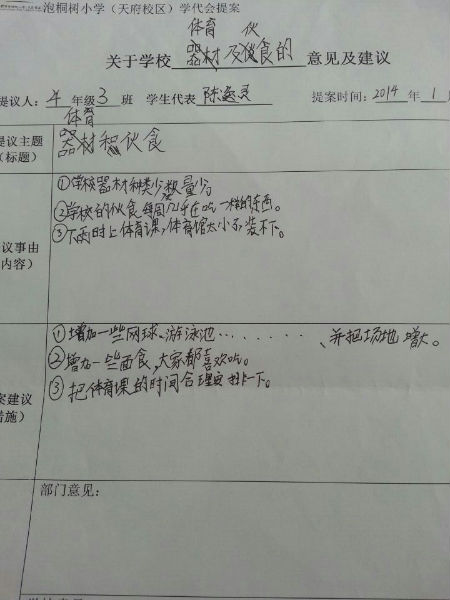 泡桐树小学（天府校区）学代会提案
体育 伙
关于学校器材及伙食的意见及建议
提议人：年级3班 学生代表 陈 提案时间：2014年1
体育
提议主题 器材和伙食
（标题）
①学校器材种类少数量少
②学校的伙食每周几乎在吃一样的东西。
议事由 ③下雨时上体育课，体育馆太小了装不下。
内容）
①增加一些网球、游泳池........、并把场地增大。
②增加一些面食，大家都喜欢吃。
案建议 ③把体育课的时间合理安排一下。
措施）
部门意见：